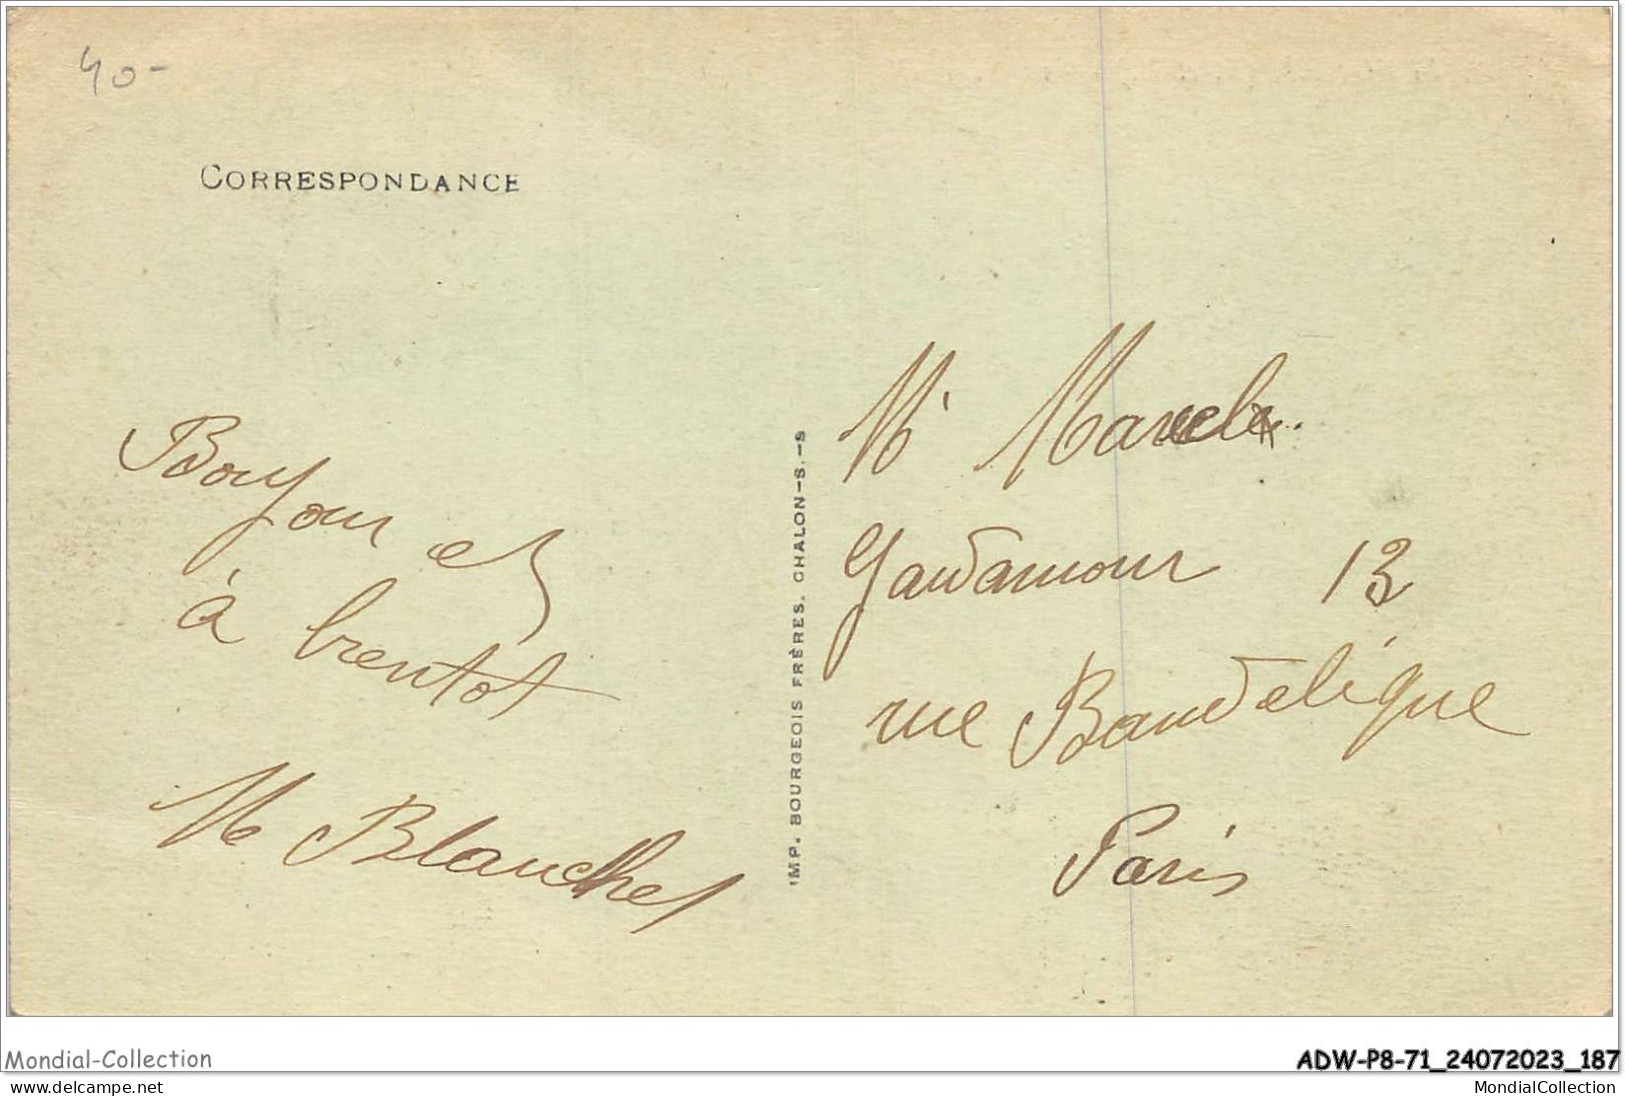 40-
CORRESPONDANCE
Bonjour et
à bientot
M Blanchet
IMP. BOURGEOIS FRÈRES. CHALON-S.-S
Mr Marcel
Gaudamour 13
rue Baudelique
Paris
Mondial-Collection
ADW-P8-71_24072023_187
www.delcampe.net
MondialCollection